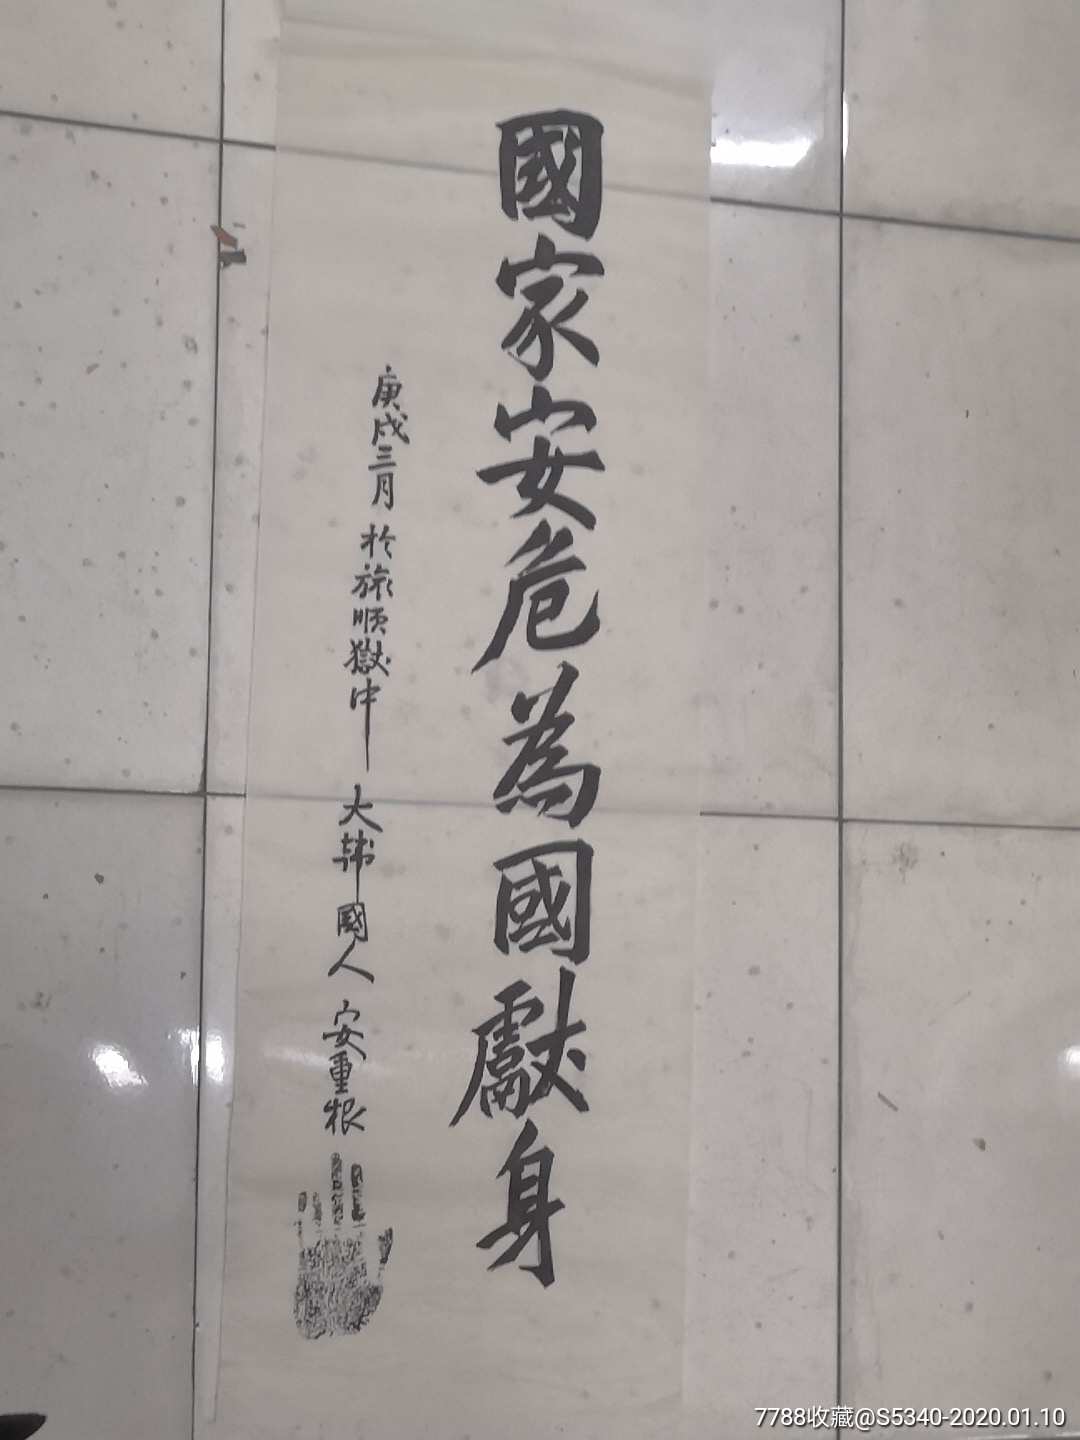 國家安危為國獻身
庚戌三月 於旅順獄中 大韓國人 安重根
7788收藏@S5340-2020.01.10